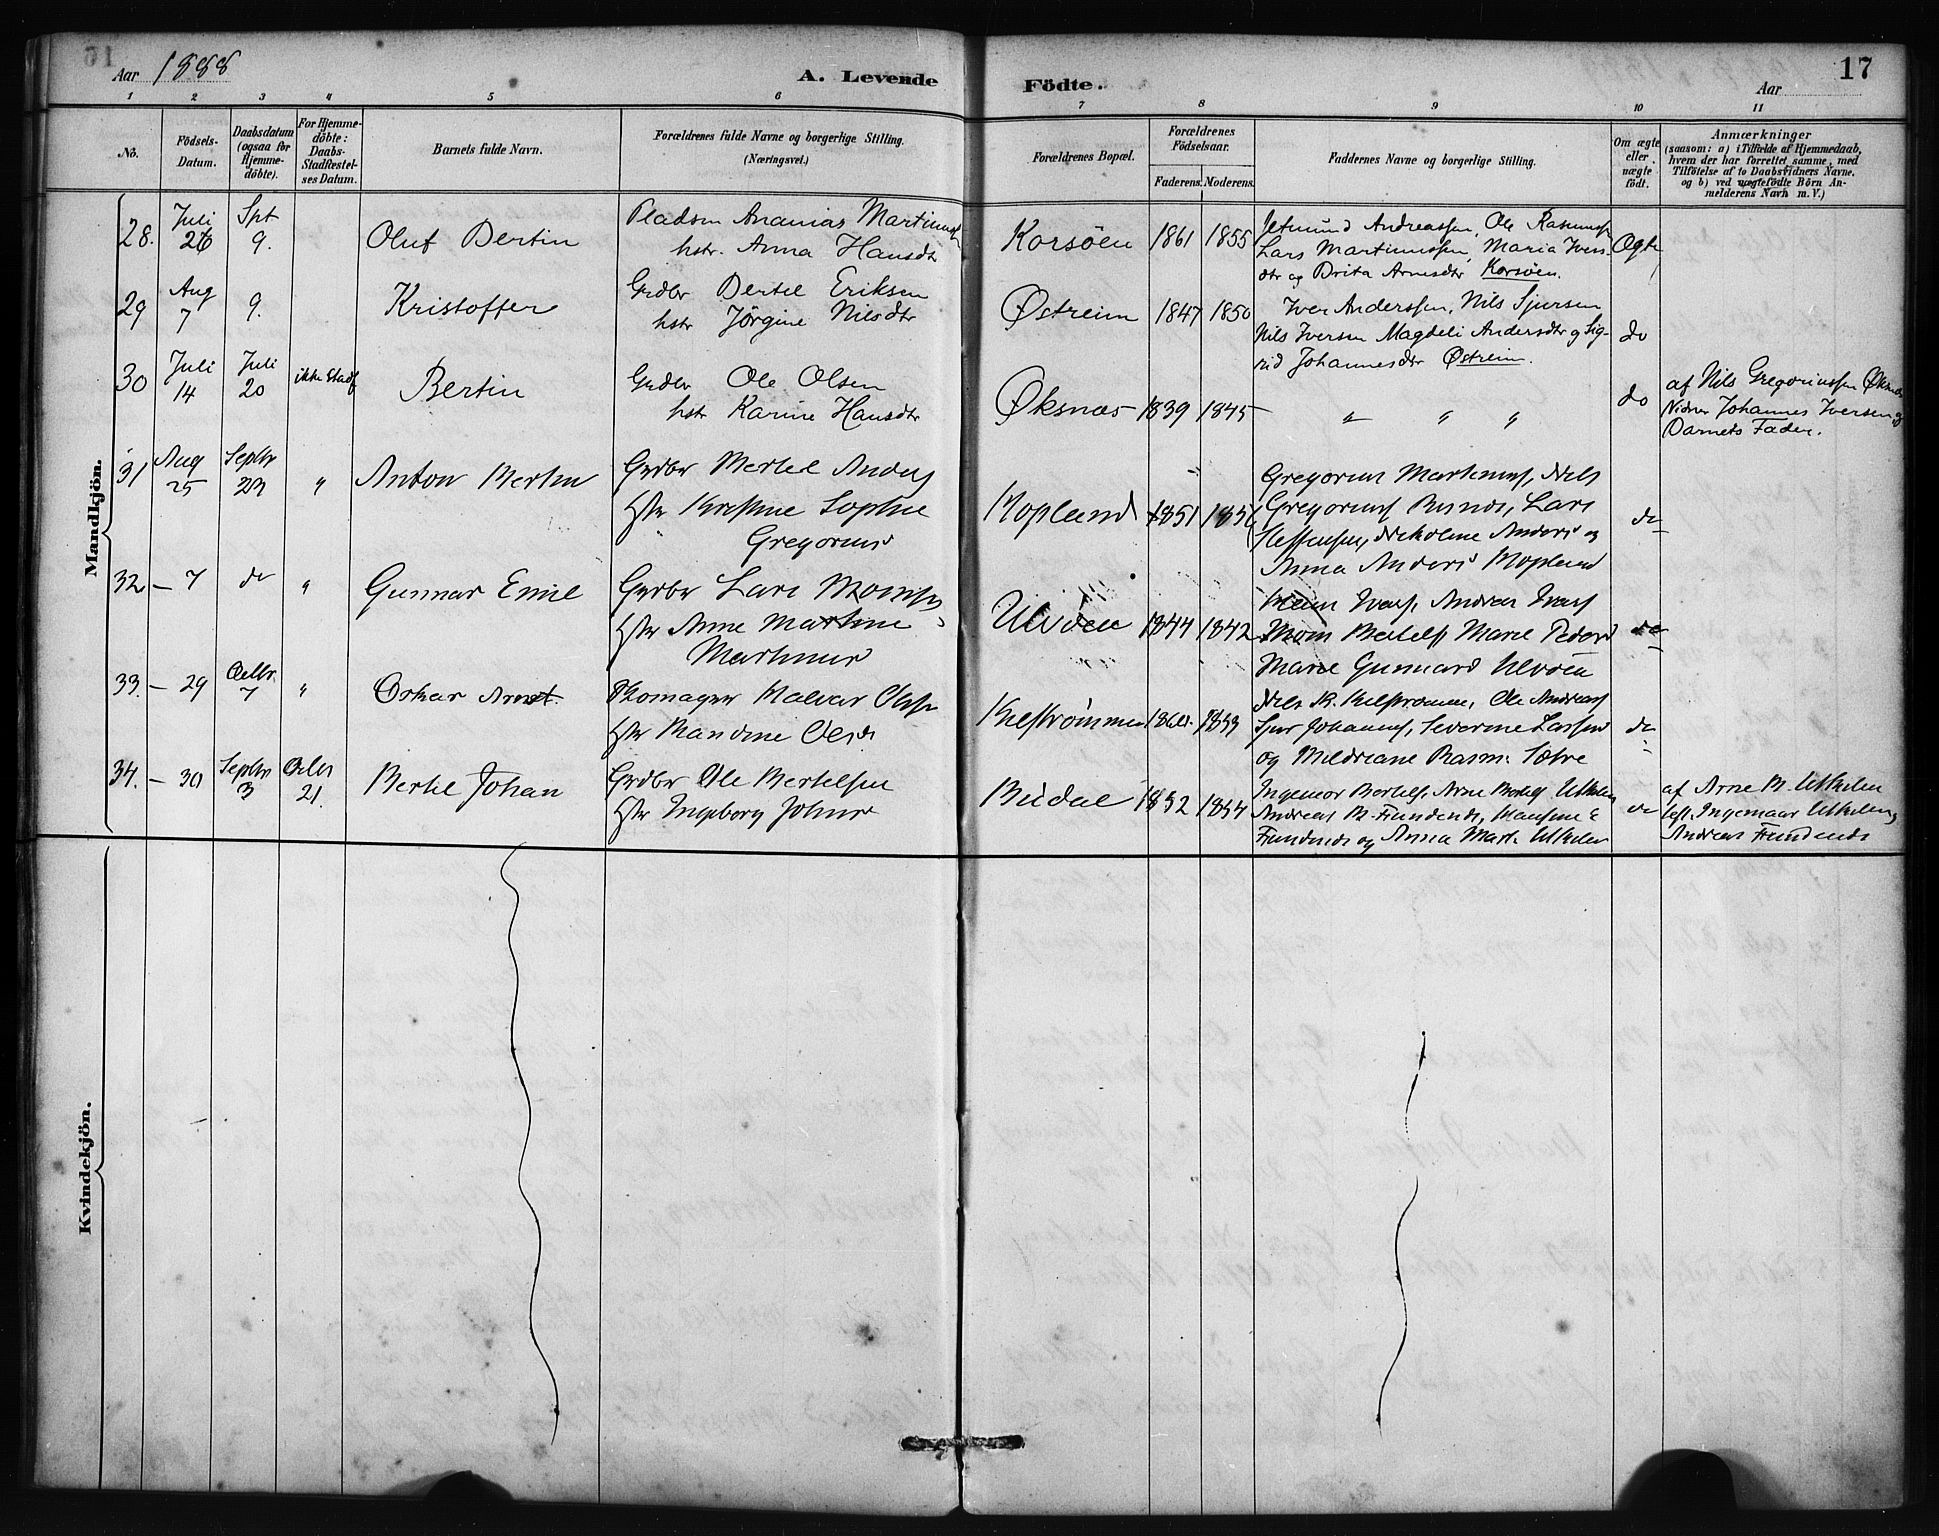 Aar 1888
A. Levende
Födte.
17
Aar
1 2 3 4 5 6 7 8 9 10 11
No.
Födsels-
Datum.
Daabsdatum
(ogsaa for
Hjemme-
döbte).
For Hjemme-
döbte:
Daabs-
Stadfæstel-
ses Datum.
Barnets fulde Navn.
Forældrenes fulde Navne og borgerlige Stilling.
(Næringsvei.)
Forældrenes Bopæl.
Forældrenes
Födselsaar.
Faderens. Moderens.
Faddernes Navne og borgerlige Stilling.
Om ægte
eller
uægte
födt.
Anmærkninger
(saasom: a) i Tilfælde af Hjemmedaab,
hvem der har forrettet samme, med
Tilföielse af to Daabsvidners Navne,
og b) ved uægtefödte Börn An-
melderens Navn m. V.)
Mandkjön.
28. Juli 26 Spt 9. Oluf Bertin
Pladsm Ananias Martinus
hstr. Anna Hansdtr
Korsöen 1861 1855
Jetmund Andreassen, Ole Rasmuss
Lars Martinussen, Maria Ivers-
dtr og Brita Arnesdtr Korsöen.
Ægte
29 Aug 7 9. Kristoffer
Grdbr Bertel Eriksen
hstr Jörgine Nilsdtr
Østreim 1847 1850
Iver Anderssen, Nils Sjursen
Nils Iversen Magdeli Andersdtr og Sig-
rid Johannesdtr Østreim.
do
30 Juli 14 Juli 20 ikke Stadf Bertin
Grdbr Ole Olsen
hstr Karine Hansdtr
Øksnæs 1839 1845
" " "
do
af Nils Gregoriussen
Vidner Johannes Iversen og
Barnets Fader.
31 Aug 25 Septbr 23 " Anton Bertin
Grdbr Bertel Anders
Hstr Kristine Sophie
Gregorius
Hopland 1851
Gregorius Martinus, Nils
Gregorius Lars
Steffensen, Nikoline Anders og
Anna Anders Hopland
do
32 – 7 do " Gunnar Emil
Grdbr Lars Monss
Hstr Anne Martine
Martinus
Ulvöen 1844 1842
Ivers, Andreas Ivers
Mons Bertels Marie Peders
Marie Gunnars Ulvöen
do
33. – 29 Octbr. 7 " Oskar Arnet
Skomager Halvar Olss
Hstr Olesd
Kjelströmmen
Nils R. Kjelströmmen, Ole Andreas
Sjur Johannes, Severine Larsens
og Rasm. Sætre
do
34. – 30 Septbr 3 Octbr 21. Bertel Johan
Grdbr Ole Bertelsen
Hstr Ingeborg Johns
Budal 1852 1854
Ingemar Bertels, Arne Bertels Utkilen
Andreas B. Hansine
og Anna Mart. Utkilen
do
af Arne B. Utkilen
test. Ingemaar Utkilen,
Andreas
Kvindekjön.